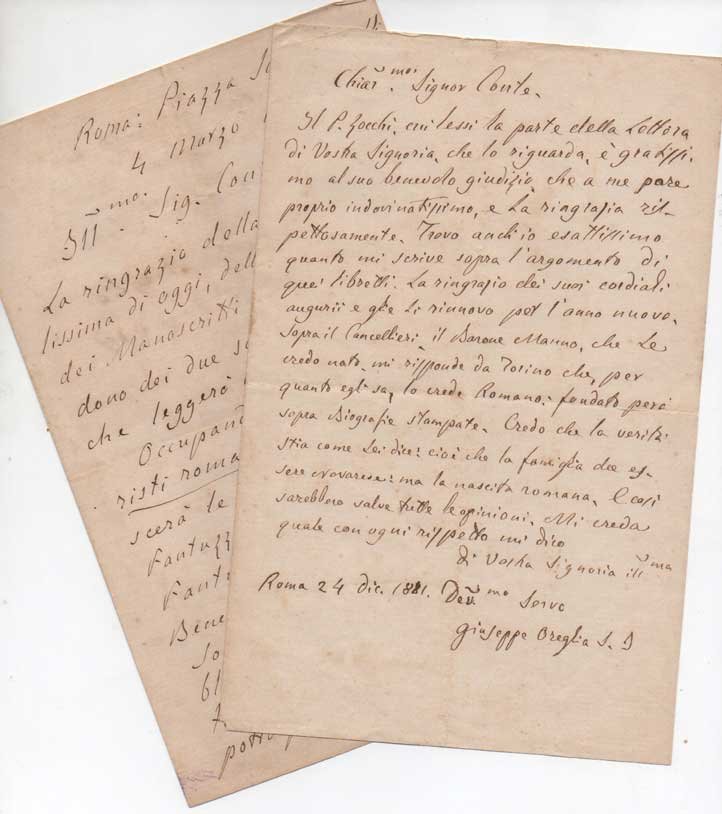 Roma: Piazza
4 Marzo
Ill.mo Sig. Con
La ringrazio della
lissima di oggi, dell
dei Manoscritti
dono dei due
che leggerò
Occupand
risti roma
scerà le
Fantuzz
Fant
Bene
so
61
potrò
Chiar.mo Signor Conte.
Il P. Zocchi, cui lessi la parte della Lettera
di Vostra Signoria, che lo riguarda, è gratissi-
mo al suo benevolo giudizio, che a me pare
proprio indovinatissimo, e La ringrazia ris-
pettosamente. Trovo anch'io esattissimo
quanto mi scrive sopra l'argomento di
quei libretti. La ringrazio dei suoi cordiali
augurii e glie li rinnovo per l'anno nuovo.
Sopra il Cancellieri, il Barone Manno, che Le
credo noto, mi risponde da Torino che, per
quanto egli sa, lo crede Romano: fondato però
sopra Biografie stampate. Credo che la verità
stia come Lei dice: cioè che la famiglia dee es-
sere Novarese: ma la nascita romana. E così
sarebbero salve tutte le opinioni. Mi creda
quale con ogni rispetto mi dico
di Vostra Signoria ill.ma
Roma 24 dic. 1881. Dev.mo Servo
Giuseppe Oreglia S. J